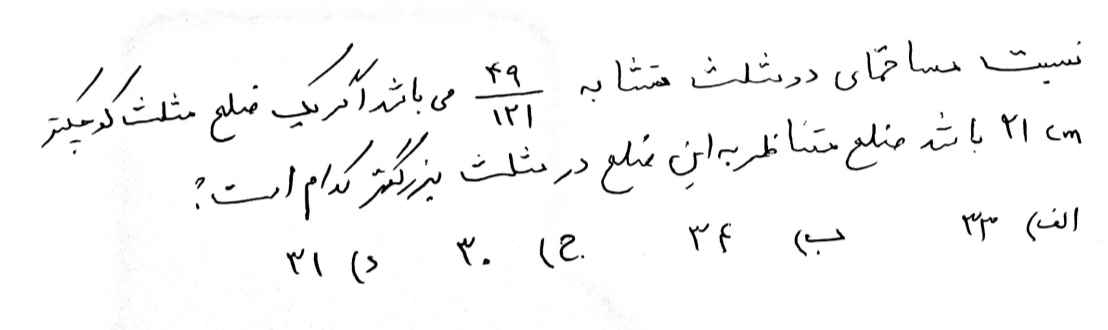 نسبت مساحتهای دو مثلث متشابه ۴۹/۱۲۱ می باشد اگر یک ضلع مثلث کوچکتر
۲۱ cm باشد ضلع متناظر به این ضلع در مثلث بزرگتر کدام است؟
الف) ۳۳ ب) ۳۴ ج) ۳۰ د) ۳۱